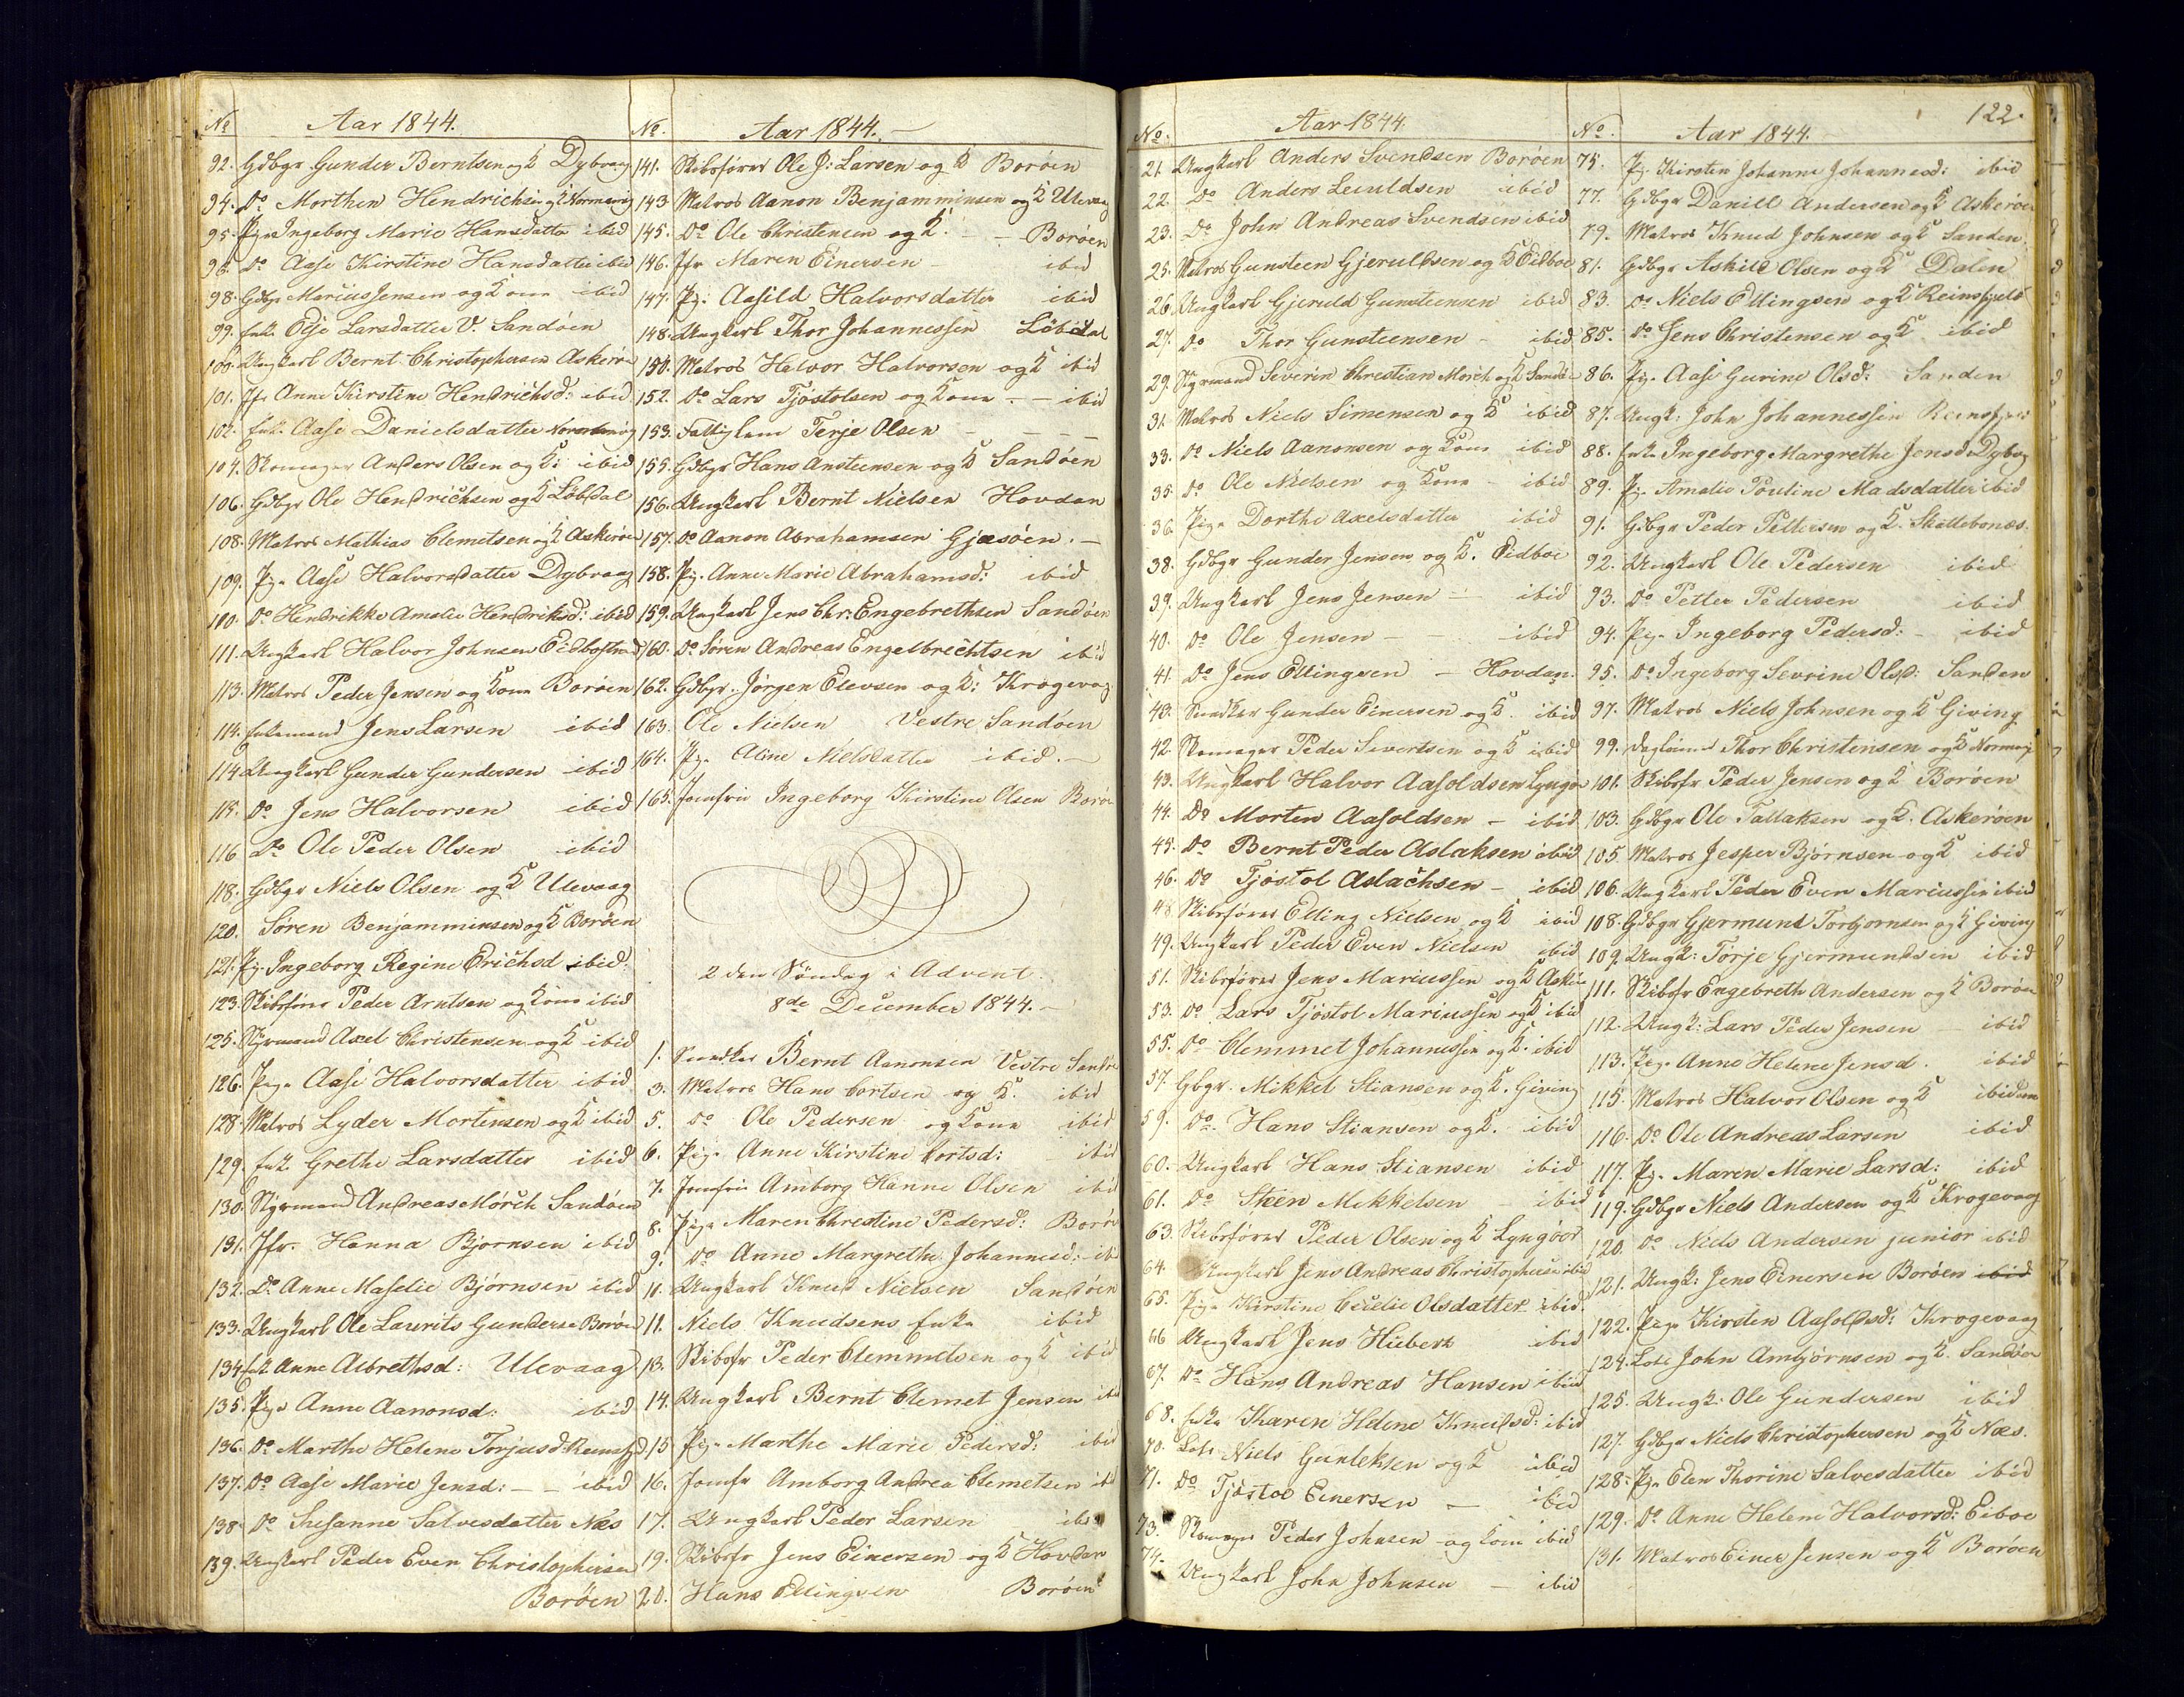 No Aar 1844.
92. Gdbgr Gunder Berntsen og K Dybvaag
94. Do Morthen Hendrichsen og K Normevig
95. Pige Ingeborg Marie Hansdatter ibid
96. Do Aase Kirstine Hansdatter ibid
98. Gdbgr Marius Jensen og Kone ibid
99. Enke Edje Larsdatter V. Sandöen
100. Ungkarl Bernt Christophersen Askeröen
101. Jfr Anne Kirstine Hendrichsd: ibid
102. Enke Aase Danielsdatter Normevig
104. Skomager Anders Olsen og K: ibid
106. Gdbgr Ole Hendrichsen og K Löbdal
108. Matros Mathias Clemetsen og K Askeröen
109. Pige Aase Halvorsdatter Dybvaag
110. Do Hendrikke Amalie Hendriksd: ibid
111. Ungkarl Halvor Johnsen Eidbostrand
113. Matros Peder Jensen og Kone Boröen
114. Enkemand Jens Larsen ibid
114 Ungkarl Gunder Gundersen ibid
115. Do Jens Halvorsen ibid
116 Do Ole Peder Olsen ibid
118. Gdbgr Niels Olsen og K Ulevaag
120. Sören Benjaminsen og K Boröen
121. Pg. Ingeborg Regine Erichsd ibid.
123. Skibsförer Peder Arntsen og Kone ibid
125. Styrmand Axel Christensen og K ibid
126. Pige Aase Halvorsdatter ibid
128. Matros Lyder Mortensen og K ibid
129. Enke Grethe Larsdatter ibid
130. Styrmand Andreas Mörch Sandöen
131. Jfr. Hanna Bjornsen ibid
132. Do Anne Malie Björnsen ibid
133. Ungkarl Ole Laurits Gundersen Boröen
134 Enk Anne Albrethsd: Ulevaag
135. Pige Anne Aanonsd. ibid
136. Do Marthe Helene Torjusd: Reinsfjeld
137. Do Aase Marie Jensd: - - ibid
138. Do Susanne Salvesdatter Næs
139. Ungkarl Peder Even Christophersen
Boröen
No. Aar 1844. -
141. Skibsförer Ole J: Larsen og K Boröen
143 Matros Aanon Benjamminsen og K Ulevaag
145. Do Ole Christensen og K. - - Boröen
146. Jfr Maren Einersen ibid
147. Pg: Aasild Halvorsdatter ibid
148. Ungkarl Thor Johannessen Löbdal
150. Matros Halvor Halvorsen og K ibid
152. Do Lars Tjöstolsen og Kone - - ibid
153. Fattiglem Terje Olsen - - - -
155. Gdbgr Hans Ansteensen og K Sandöen
156. Ungkarl Bernt Nielsen Hovdan
157. Do Aanon Abrahamsen Gjæsöen. -
158. Pg. Anne Marie Abrahamsd: ibid
159. Ungkarl Jens Chr: Engebrethsen Sandöen
160. Do Sören Andreas Engelbrechtsen ibid
162. Gdbgr. Jörgen Elevsen og K: Krogevag
163. Ole Nielsen Vestre Sandöen
164. Pg. Aline Nielsdatter ibid. -
165. Jomfru Ingeborg Kirstine Olsen Boröe
2den Söndag i Advent.
8de December 1844. -
1. Bernt Aanonsen Vestre Sandöe
3. Matros Hans Cortsen og K. ibid
5. Do Ole Pedersen og Kone ibid
6. Pige Anne Kirstine Cortsd: ibid
7. Jomfru Amborg Hanne Olsen ibid
8. Pige Maren Christine Pedersd: Boröe
9. Do Anne Margrethe Johannesd: ibid
10. Ungkarl Knud Nielsen Sandöen
11. Niels Knudsens Enke ibid
13. Skibsfr Peder Clemmetsen og K ibid
14. Ungkarl Bernt Clemet Jensen ibid
15 Pige Marthe Marie Pedersd: ibid
16. Jomfr Amborg Andrea Clemetsen ibid
17. Ungkarl Peder Larsen ibid
19. Skibsfr Jens Einersen og K Hovdan
20. Hans Ellingsen Boröen
No. Aar 1844.
21. Ungkarl Anders Svendsen Boröen
22. Do Anders Leuuldsen ibid
23. Do John Andreas Svendsen ibid
25. Matros Gunsteen Gjeruldsen og K Eidboe
26. Ungkarl Gjeruld Gunsteensen ibid
27. Do Thor Gunsteensen - ibid
29. Styrmand Severin Christian Mörch og K Sandöe
31. Matros Niels Simensen og K ibid
33. Do Niels Aanonsen og Kone ibid
35. Do Ole Nielsen og Kone - ibid
36. Pige Dorthe Axelsdatter ibid
38. Gdbgr Gunder Jensen og K. Eidboe
39. Ungkarl Jens Jensen - ibid
40. Do Ole Jensen - - ibid
41. Do Jens Ellingsen - Hovdan.
43. Gunder Einersen og K. ibid
42. Skomager Peder Sivertsen og K ibid
43. Ungkarl Halvor Aasoldsen Lyngör
44. Do Morten Aasoldsen - ibid
45. Do Bernt Peder Aslaksen ibid
46. Do Tjöstol Aslachsen - ibid
48 Skibsförer Elling Nielsen og K ibid
49. Ungkarl Peder Even Nielsen ibid
51. Skibsförer Jens Mariussen og K Askeröe
53. Do Lars Tjöstol Mariussen og K ibid
55. Do Clemmet Johannessen og K. ibid
57. Gbgr. Mikkel Stiansen og K. Giving
59. Do. Hans Stiansen og K. ibid
60. Ungkarl Hans Stiansen ibid
61. Do Steen Mikkelsen ibid
63. Skibsförer Peder Olsen og K Lyngöer
64. Ungkarl Jens Andreas Christophersen ibid
65. Pige Kirstine Cecelie Olsdatter ibid.
66 Ungkarl Jens Hubert ibid
67. Do Hans Andreas Hansen ibid
68. Enke Karen Helene Knudsd: ibid
70. Lots Niels Gunleksen og K ibid
71. Do Tjöstol Einersen - ibid
73. Skomager Peder Johnsen og Kone ibid
74. Ungkarl John Johnsen - ibid
122.
No. Aar 1844.
75. Pg. Kirsten Johanne Johannesd: ibid
77. Gdbgr Daniel Andersen og K Askeröen
79. Matros Knud Johnsen og K Sanden
81. Gdbgr Askild Olsen og K Dalen
83. Do Niels Ellingsen og K Reinsfjeld
85. Do Jens Christensen og K ibid
86. Pige Aase Gurine Olsd: Sanden
87. Ungk: John Johannessen Reinsfjeld
88. Enke Ingeborg Margrethe Jensd Dybvg
89. Pg. Amalie Pouline Madsdatter ibid
91. Gdbgr Peder Pettersen og K. Skattebonæs.
92. Ungkarl Ole Pedersen ibid
93. Do Petter Pedersen ibid
94. Pige Ingeborg Pedersd: - ibid
95. Do Ingeborg Sevrine Olsd: Sanden
97. Matros Niels Johnsen og K Giving
99. Thor Christensen og K Normevig
101. Skibsfr Peder Jensen og K Boröen
103. Gdbgr Ole Tallaksen og K. Askeröen
105. Matros Jesper Björnsen og K ibid
106. Ungkarl Peder Even Mariussen ibid
108. Gdbgr Gjermund Torbjornsen og K Giving
109. Ungk: Torje Gjermundsen ibid
111. Skibsfr Engebreth Andersen og K Boröen
112. Ungk: Lars Peder Jensen - ibid
113. Pige Anne Helene Jensd. ibid
115. Matros Halvor Olsen og K ibidem
116. Do Ole Andreas Larsen ibid
117. Pg. Maren Marie Larsd: ibid
119. Gdbgr Niels Andersen og K Krogevaag
120. Do Niels Andersen junior ibid
121. Ungk: Jens Einersen Boröen ibid
122. Pige Kirsten Aasoldsd: Krogevaag
124. Lots John Ambjörnsen og K. Sandöe
125. Ungk: Ole Gundersen ibid
127. Gdbgr Niels Christophersen og K Næs.
128. Pige Elen Thorine Salvesdatter ibid
129. Do Anne Helene Halvorsd: Eiboe
131. Matros Einer Jensen og K Boröen